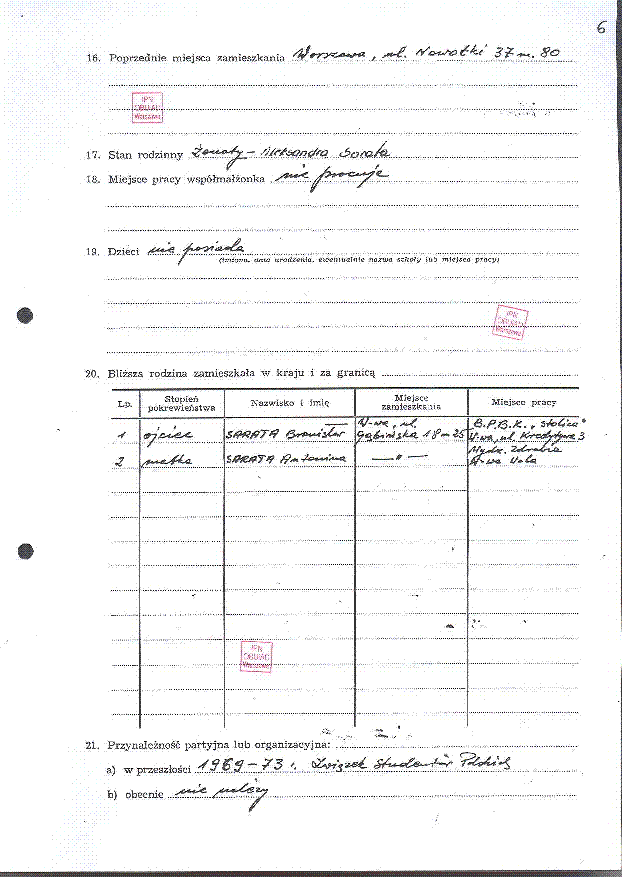 6
16. Poprzednie miejsca zamieszkania Warszawa, ul. Nowotki 37 m. 80
IPN
OBUiAD
Warszawa
17. Stan rodzinny żonaty – Aleksandra Sarata
18. Miejsce pracy współmałżonka nie pracuje
19. Dzieci nie posiada
(imiona, data urodzenia, ewentualnie nazwa szkoły lub miejsca pracy)
IPN
OBUiAD
Warszawa
20. Bliższa rodzina zamieszkała w kraju i za granicą
Lp. Stopień pokrewieństwa Nazwisko i imię Miejsce zamieszkania Miejsce pracy
1 ojciec SARATA Bronisław W-wa, ul. Gąbińska 18 m 25 B.P.B.K. „Stolica" W-wa, ul. Kredytowa 3
2 matka SARATA Antonina — " — Wydz. Zdrowia W-wa Wola
IPN
OBUiAD
Warszawa
21. Przynależność partyjna lub organizacyjna:
a) w przeszłości 1969–73 r. Związek Studentów Polskich
b) obecnie nie należy